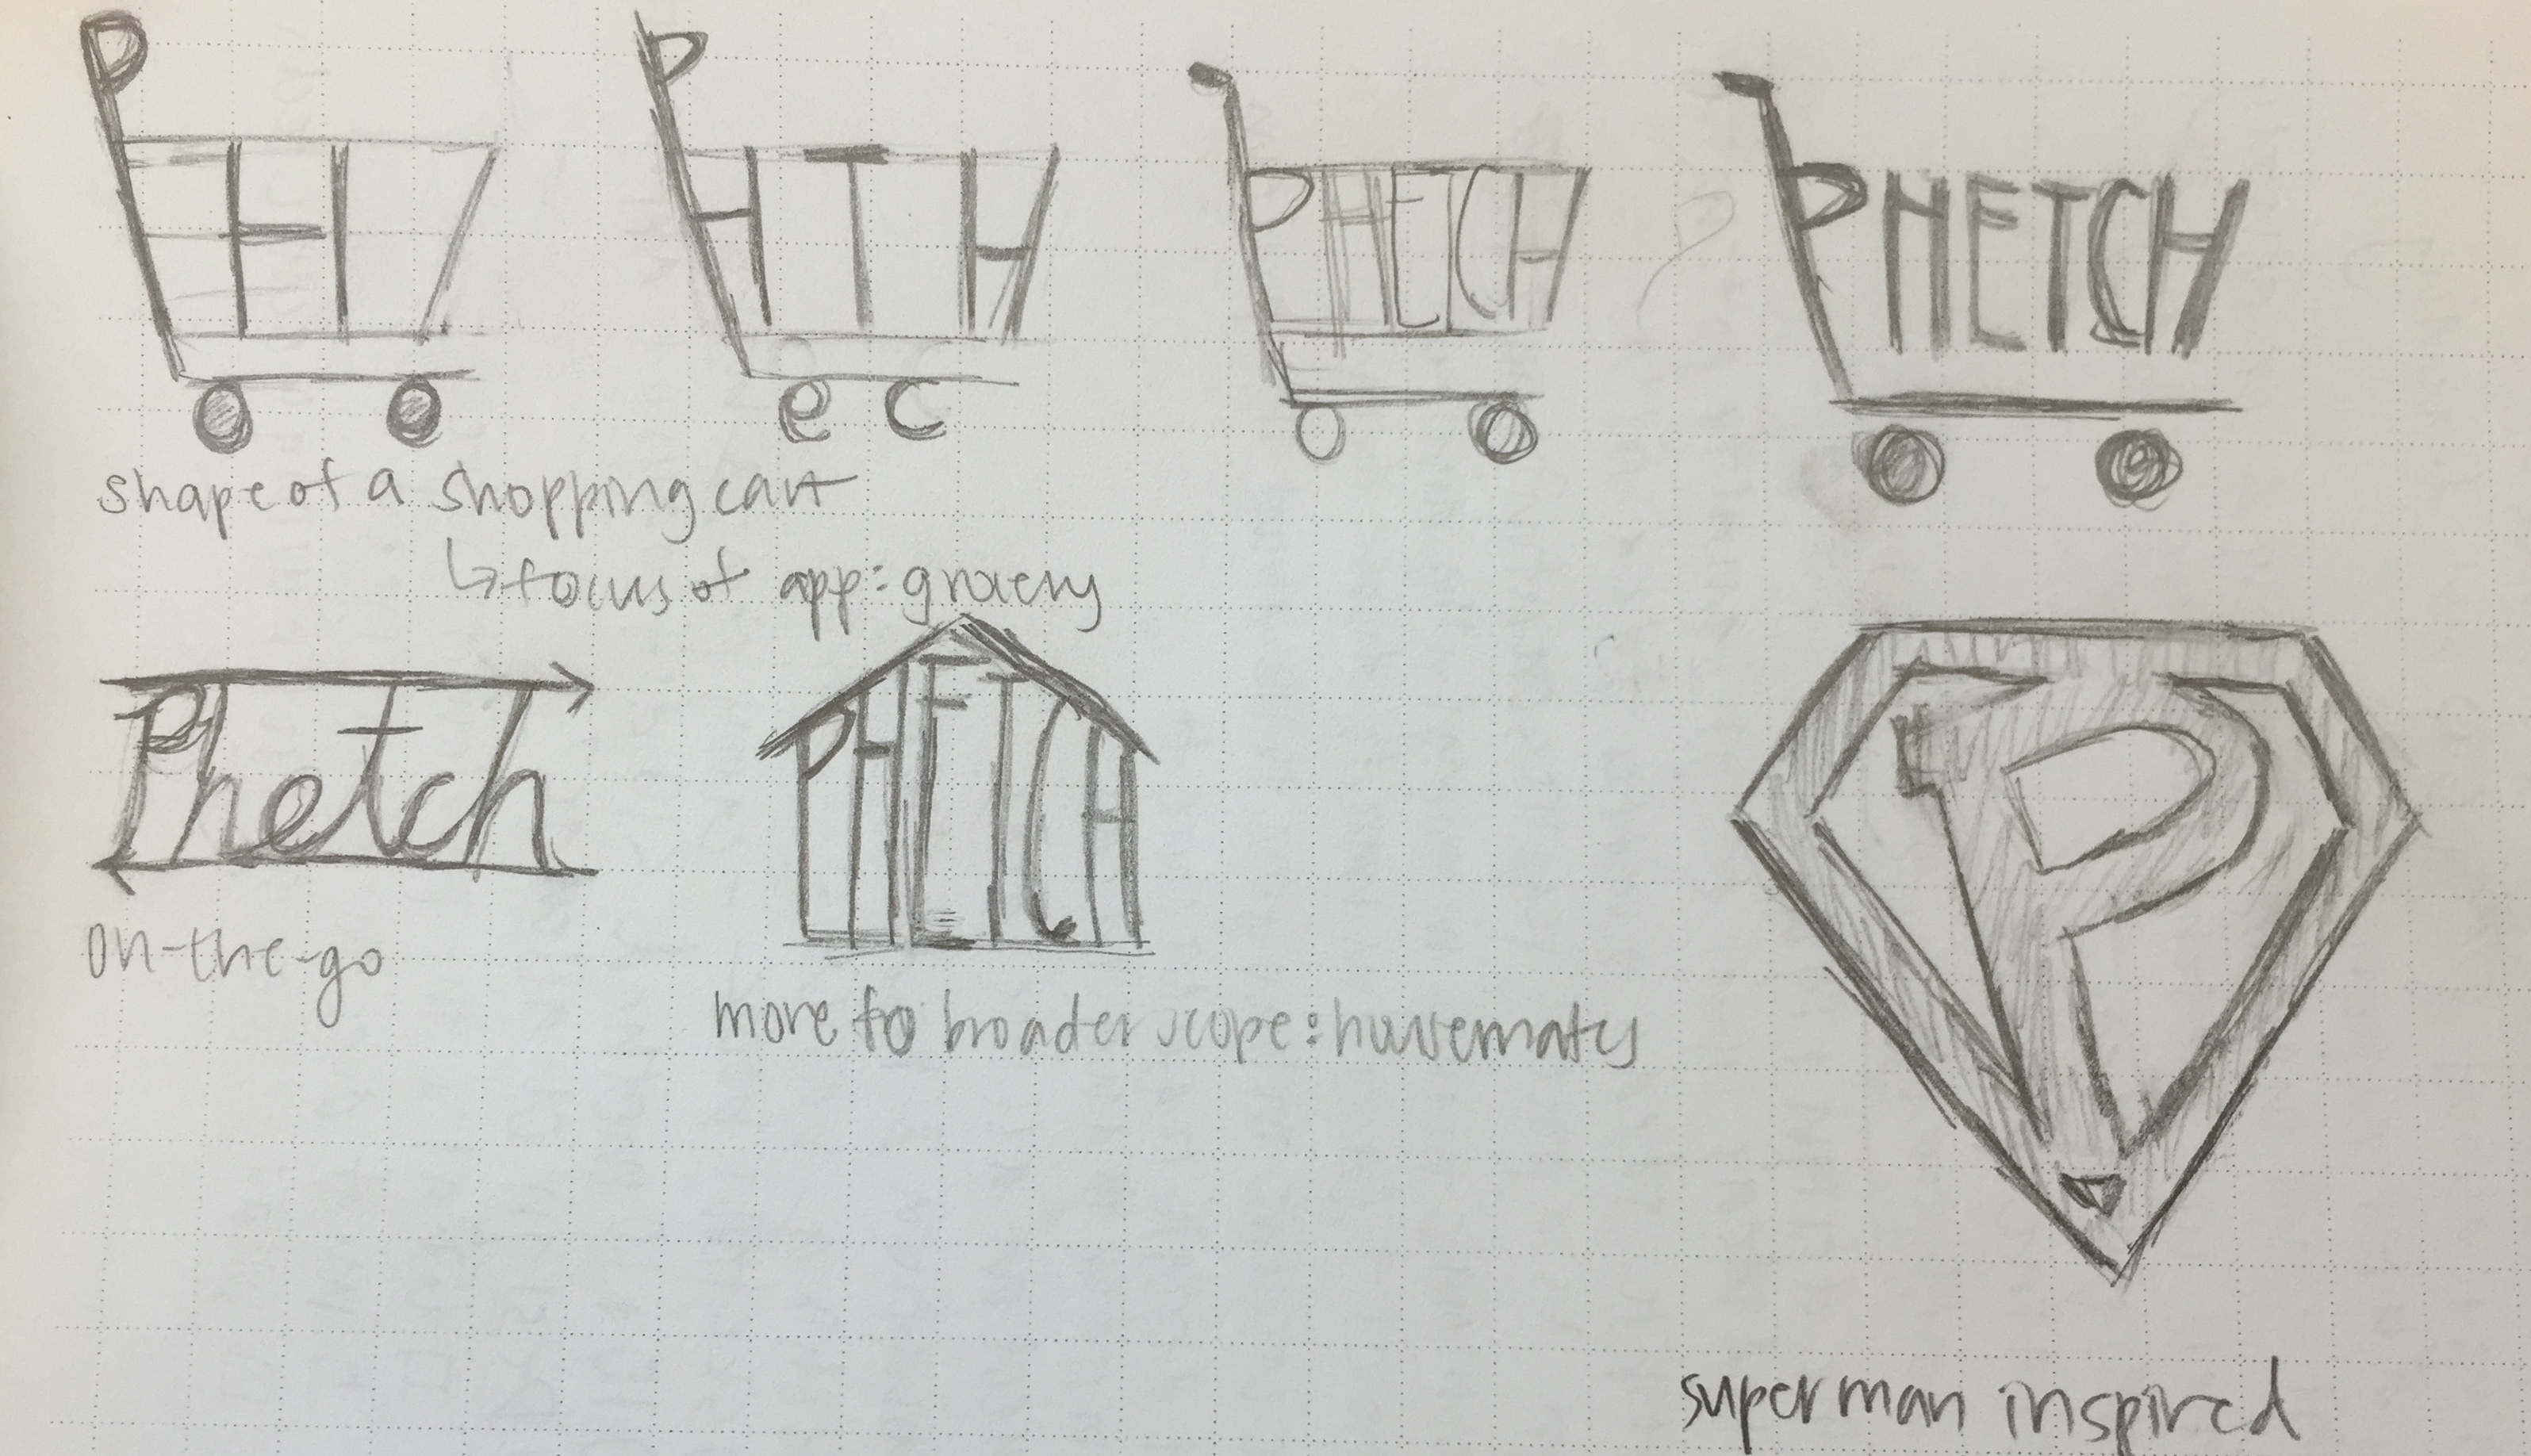 P H
P H T H
e c
PHETCH
PHETCH
shape of a shopping cart
↳ focus of app: grocery
Phetch
PHETCH
P
on-the-go
more to broader scope:
superman inspired